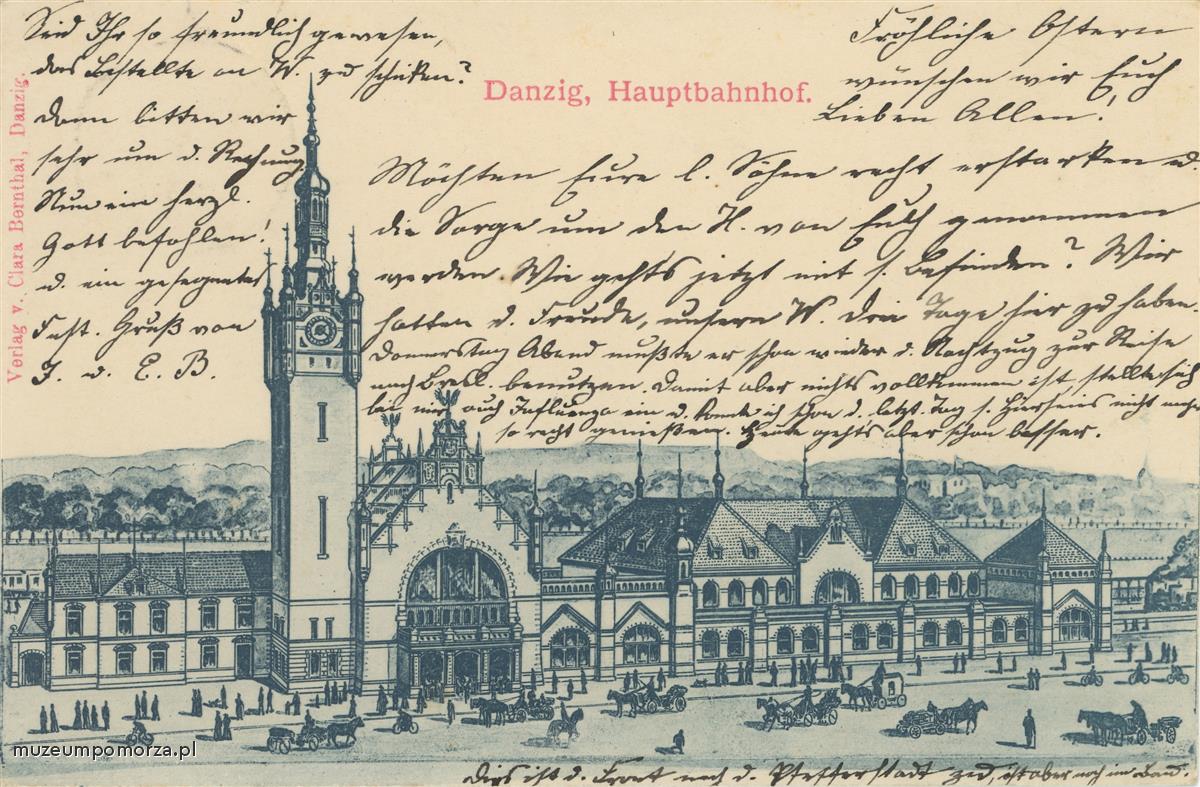 Fröhliche Ostern
wünschen wir Euch
Lieben Allen!
Danzig, Hauptbahnhof.
Möchten Eure l. Söhne recht erstarken u.
die Sorge um den H. von Euch genommen
werden. Wie gehts jetzt mit s. Befinden? Wir
hatten d. Freude, unsern W. drei Tage hier zu haben.
Donnerstag Abend mußte er schon wieder d. Nachtzug zur Reise
nach Bresl. benutzen. Damit aber nichts vollkommen ist, stellte sich
bei mir auch Influenza ein u. konnte ich schon d. letzt. Tag s. Hierseins nicht mehr
so recht genießen. Heute gehts aber schon besser.
Seid Ihr so freundlich gewesen,
das Bestellte an W. zu schicken?
Dann bitten wir
sehr um d. Rechnung.
Nun ein herzl.
Gott befohlen!
u. ein gesegnetes
Fest. Gruß von
J. u. E. B.
Verlag v. Clara Bernthal, Danzig.
Dies ist d. Front nach d. Pfefferstadt zu, ist aber noch im Bau.
muzeumpomorza.pl